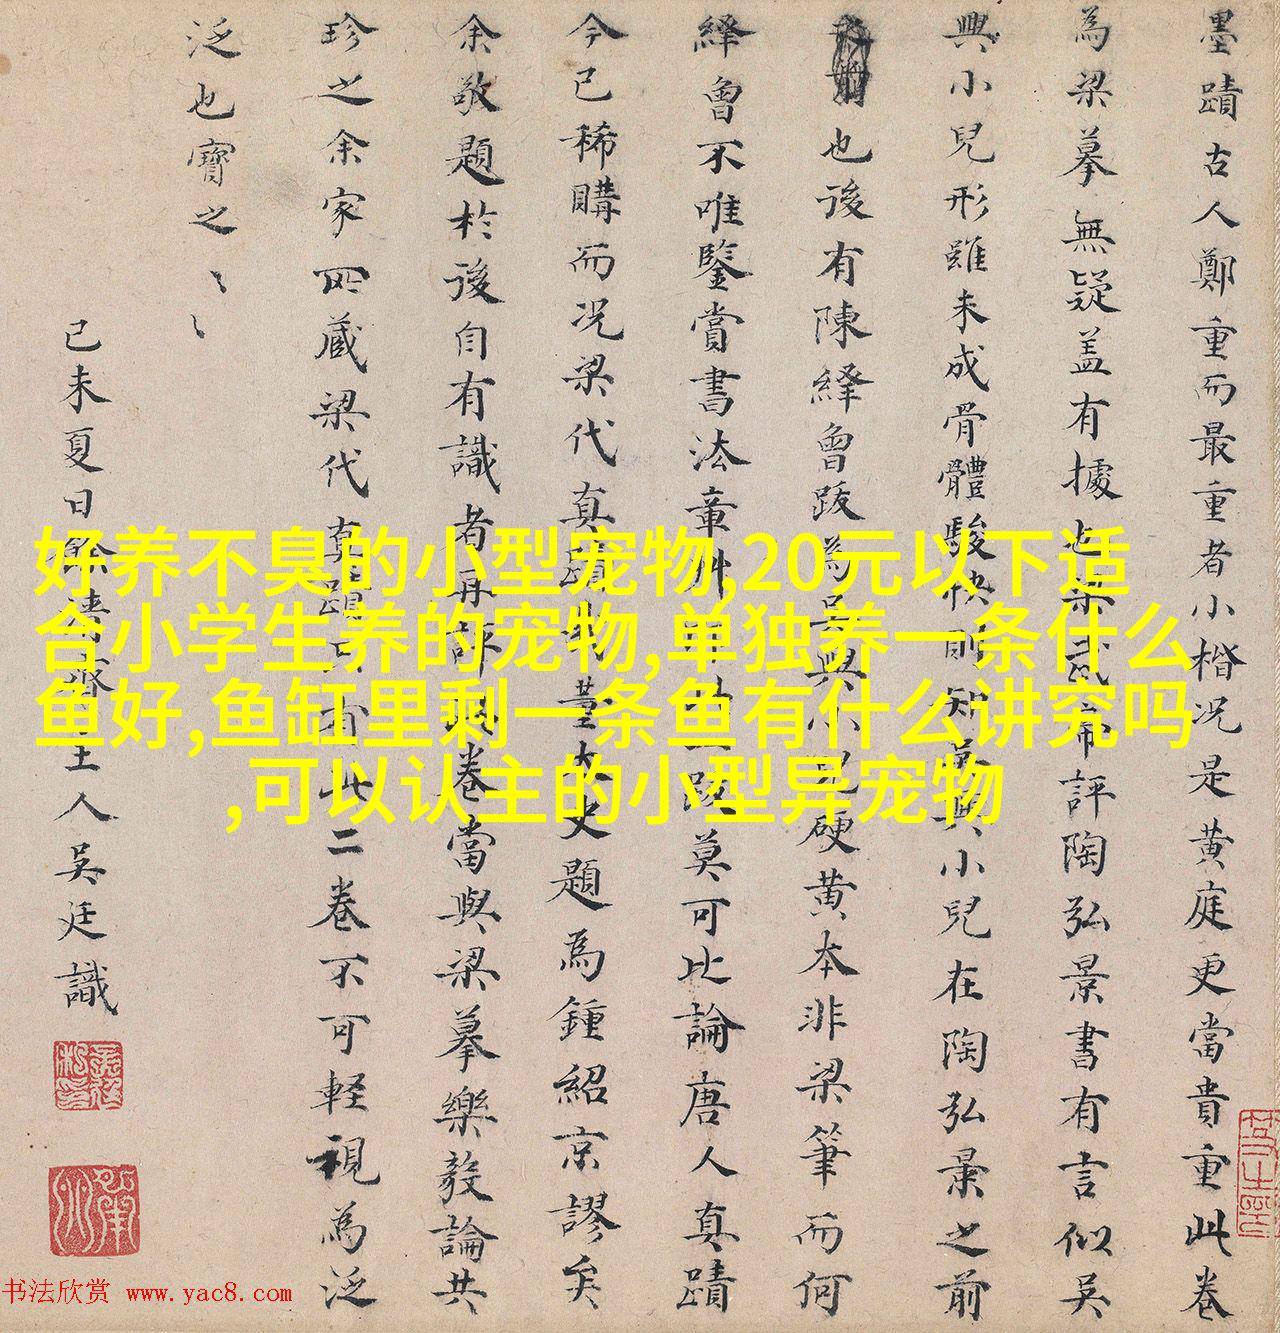 墨蹟古人鄭重而最重者小楷况是黄庭更當貴重此卷
為梁摹無疑盖有據也梁武帝評陶弘景書有言似吴
興小兒形雖未成骨體駿快則知吴興小兒在陶弘景之前
也後有陳繹曾跋為吴興小兒硬黄本非梁筆而何
繹曾不唯鑒賞書法章艸跋莫可比論唐人真蹟
今已稀購而况梁代真蹟董太史題為鍾紹京謬矣
余敬題於後自有識者再評此卷當與梁摹樂毅論共
珍之余家所藏梁代真蹟只有此二卷不可軽視為泛
泛也寶之〻〻
己未夏日餘清齋主人吴廷識
好养不臭的小型宠物,20元以下适
合小学生养的宠物,单独养一条什么
鱼好,鱼缸里剩一条鱼有什么讲究吗
,可以认主的小型异宠物
书法欣赏 www.yac8.com